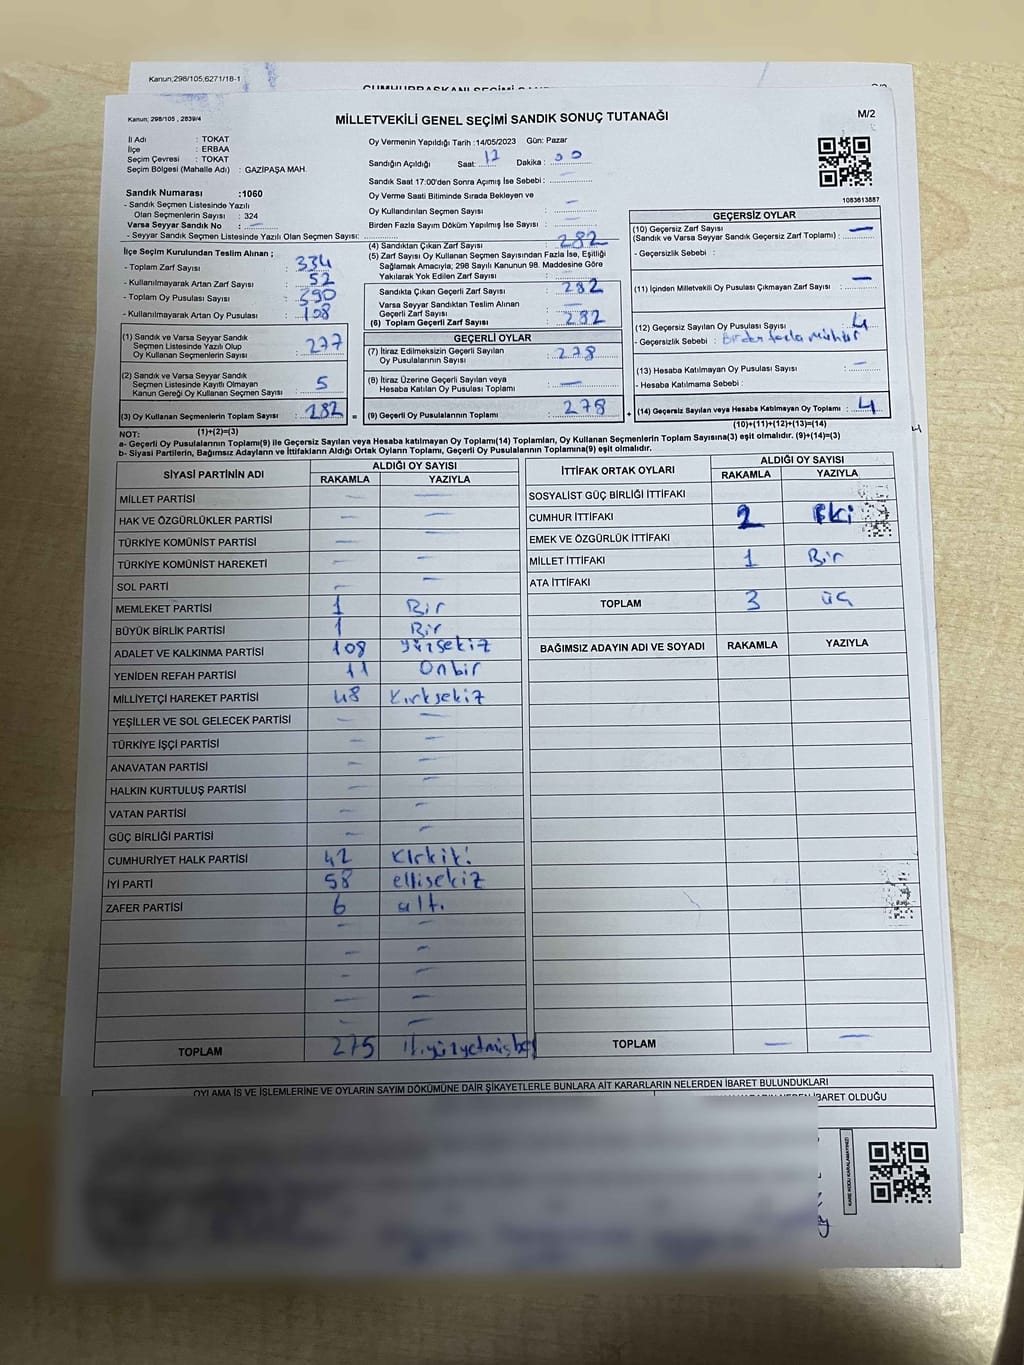 Kanun;298/105,6271/18-1
Kanun; 298/105 , 2839/4
MİLLETVEKİLİ GENEL SEÇİMİ SANDIK SONUÇ TUTANAĞI
M/2
İl Adı : TOKAT
İlçe : ERBAA
Seçim Çevresi : TOKAT
Seçim Bölgesi (Mahalle Adı) : GAZİPAŞA MAH.
Oy Vermenin Yapıldığı Tarih :14/05/2023 Gün: Pazar
Sandığın Açıldığı Saat: 17 Dakika : 00
Sandık Saat 17:00'den Sonra Açımış İse Sebebi : –
Oy Verme Saati Bitiminde Sırada Bekleyen ve
Oy Kullandırılan Seçmen Sayısı : –
Birden Fazla Sayım Döküm Yapılmış İse Sayısı : –
1083613887
Sandık Numarası :1060
- Sandık Seçmen Listesinde Yazılı
Olan Seçmenlerin Sayısı : 324
Varsa Seyyar Sandık No : –
- Seyyar Sandık Seçmen Listesinde Yazılı Olan Seçmen Sayısı:
İlçe Seçim Kurulundan Teslim Alınan ;
- Toplam Zarf Sayısı : 334
- Kullanılmayarak Artan Zarf Sayısı : 52
- Toplam Oy Pusulası Sayısı : 390
- Kullanılmayarak Artan Oy Pusulası : 108
(1) Sandık ve Varsa Seyyar Sandık
Seçmen Listesinde Yazılı Olup
Oy Kullanan Seçmenlerin Sayısı : 277
(2) Sandık ve Varsa Seyyar Sandık
Seçmen Listesinde Kayıtlı Olmayan
Kanun Gereği Oy Kullanan Seçmen Sayısı : 5
(3) Oy Kullanan Seçmenlerin Toplam Sayısı : 282 =
(4) Sandıktan Çıkan Zarf Sayısı : 282
(5) Zarf Sayısı Oy Kullanan Seçmen Sayısından Fazla İse, Eşitliği
Sağlamak Amacıyla; 298 Sayılı Kanunun 98. Maddesine Göre
Yakılarak Yok Edilen Zarf Sayısı : –
Sandıkta Çıkan Geçerli Zarf Sayısı : 282
Varsa Seyyar Sandıktan Teslim Alınan
Geçerli Zarf Sayısı : –
(6) Toplam Geçerli Zarf Sayısı : 282
GEÇERLİ OYLAR
(7) İtiraz Edilmeksizin Geçerli Sayılan
Oy Pusulalarının Sayısı : 278
(8) İtiraz Üzerine Geçerli Sayılan veya
Hesaba Katılan Oy Pusulası Toplamı : –
(9) Geçerli Oy Pusulalarının Toplamı : 278 +
GEÇERSİZ OYLAR
(10) Geçersiz Zarf Sayısı
(Sandık ve Varsa Seyyar Sandık Geçersiz Zarf Toplamı) : –
- Geçersizlik Sebebi :
(11) İçinden Milletvekili Oy Pusulası Çıkmayan Zarf Sayısı : –
(12) Geçersiz Sayılan Oy Pusulası Sayısı : 4
- Geçersizlik Sebebi : Birden fazla mühür
(13) Hesaba Katılmayan Oy Pusulası Sayısı : –
- Hesaba Katılmama Sebebi :
(14) Geçersiz Sayılan veya Hesaba Katılmayan Oy Toplamı : 4
NOT: (1)+(2)=(3)
(10)+(11)+(12)+(13)=(14)
a- Geçerli Oy Pusulalarının Toplamı(9) ile Geçersiz Sayılan veya Hesaba katılmayan Oy Toplamı(14) Toplamları, Oy Kullanan Seçmenlerin Toplam Sayısına(3) eşit olmalıdır. (9)+(14)=(3)
b- Siyasi Partilerin, Bağımsız Adayların ve İttifakların Aldığı Ortak Oyların Toplamı, Geçerli Oy Pusulalarının Toplamına(9) eşit olmalıdır.
SİYASİ PARTİNİN ADI ALDIĞI OY SAYISI
RAKAMLA YAZIYLA
MİLLET PARTİSİ – –
HAK VE ÖZGÜRLÜKLER PARTİSİ – –
TÜRKİYE KOMÜNİST PARTİSİ – –
TÜRKİYE KOMÜNİST HAREKETİ – –
SOL PARTİ – –
MEMLEKET PARTİSİ 1 Bir
BÜYÜK BİRLİK PARTİSİ 1 Bir
ADALET VE KALKINMA PARTİSİ 108 yüzsekiz
YENİDEN REFAH PARTİSİ 11 Onbir
MİLLİYETÇİ HAREKET PARTİSİ 48 kırksekiz
YEŞİLLER VE SOL GELECEK PARTİSİ – –
TÜRKİYE İŞÇİ PARTİSİ – –
ANAVATAN PARTİSİ – –
HALKIN KURTULUŞ PARTİSİ – –
VATAN PARTİSİ – –
GÜÇ BİRLİĞİ PARTİSİ – –
CUMHURİYET HALK PARTİSİ 42 kırkiki
İYİ PARTİ 58 ellisekiz
ZAFER PARTİSİ 6 altı
– –
– –
– –
– –
– –
TOPLAM 275 ikiyüzyetmişbeş
İTTİFAK ORTAK OYLARI ALDIĞI OY SAYISI
RAKAMLA YAZIYLA
SOSYALİST GÜÇ BİRLİĞİ İTTİFAKI
CUMHUR İTTİFAKI 2 İki
EMEK VE ÖZGÜRLÜK İTTİFAKI
MİLLET İTTİFAKI 1 Bir
ATA İTTİFAKI
TOPLAM 3 üç
BAĞIMSIZ ADAYIN ADI VE SOYADI RAKAMLA YAZIYLA
TOPLAM – –
OYLAMA İŞ VE İŞLEMLERİNE VE OYLARIN SAYIM DÖKÜMÜNE DAİR ŞİKAYETLERLE BUNLARA AİT KARARLARIN NELERDEN İBARET BULUNDUKLARI
İBARET OLDUĞU
KARE KODU KARALAMAYINIZ!